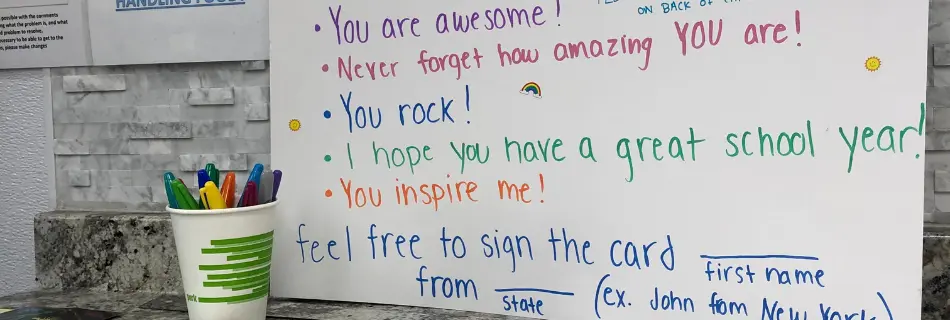 HANDLING FOOD?
possible with the comments
ng what the problem is, and what
problem to resolve,
necessary to be able to get to the
please make changes
ON BACK OF
• You are awesome!
• Never forget how amazing YOU are!
• You rock!
• I hope you have a great school year!
• You inspire me!
feel free to sign the card
first name
from
state
(ex. John from New York)